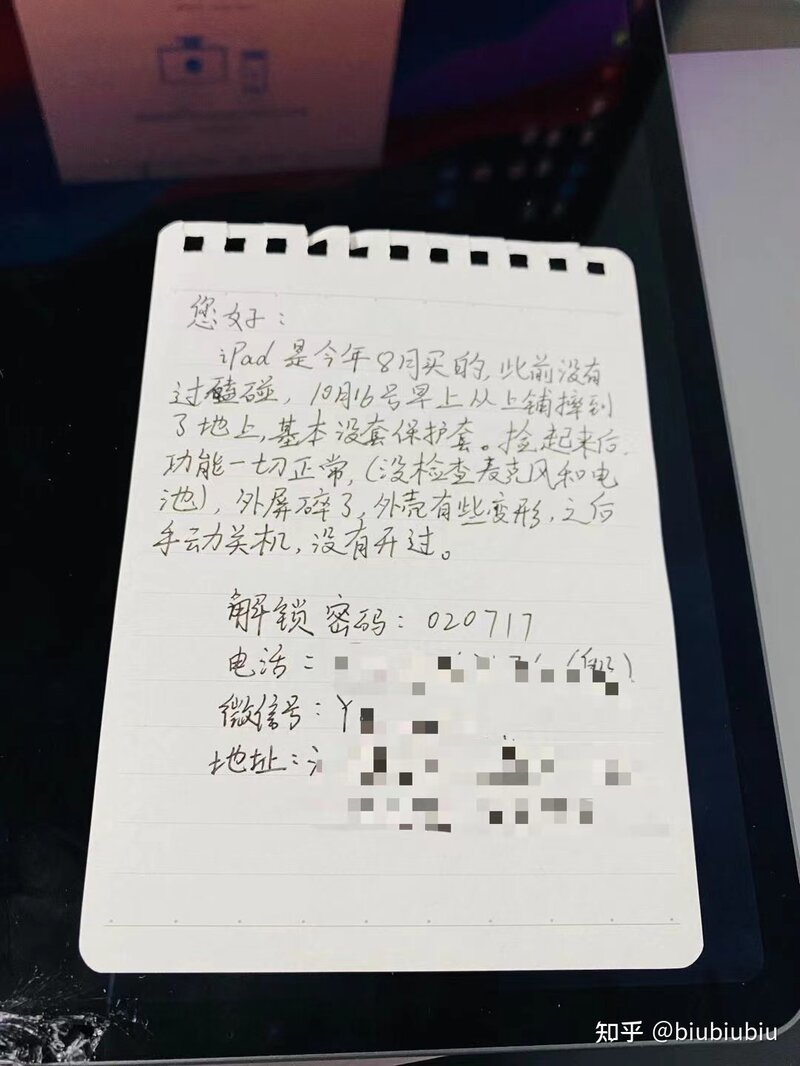 您好：
iPad 是今年8月买的，此前没有
过磕碰，10月16号早上从上铺摔到
了地上，基本没套保护套。捡起来后，
功能一切正常，(没检查麦克风和电
池)，外屏碎了，外壳有些变形，之后
手动关机，没有开过。
解锁密码：020717
电话：
微信号：Y
地址：
知乎 @biubiubiu